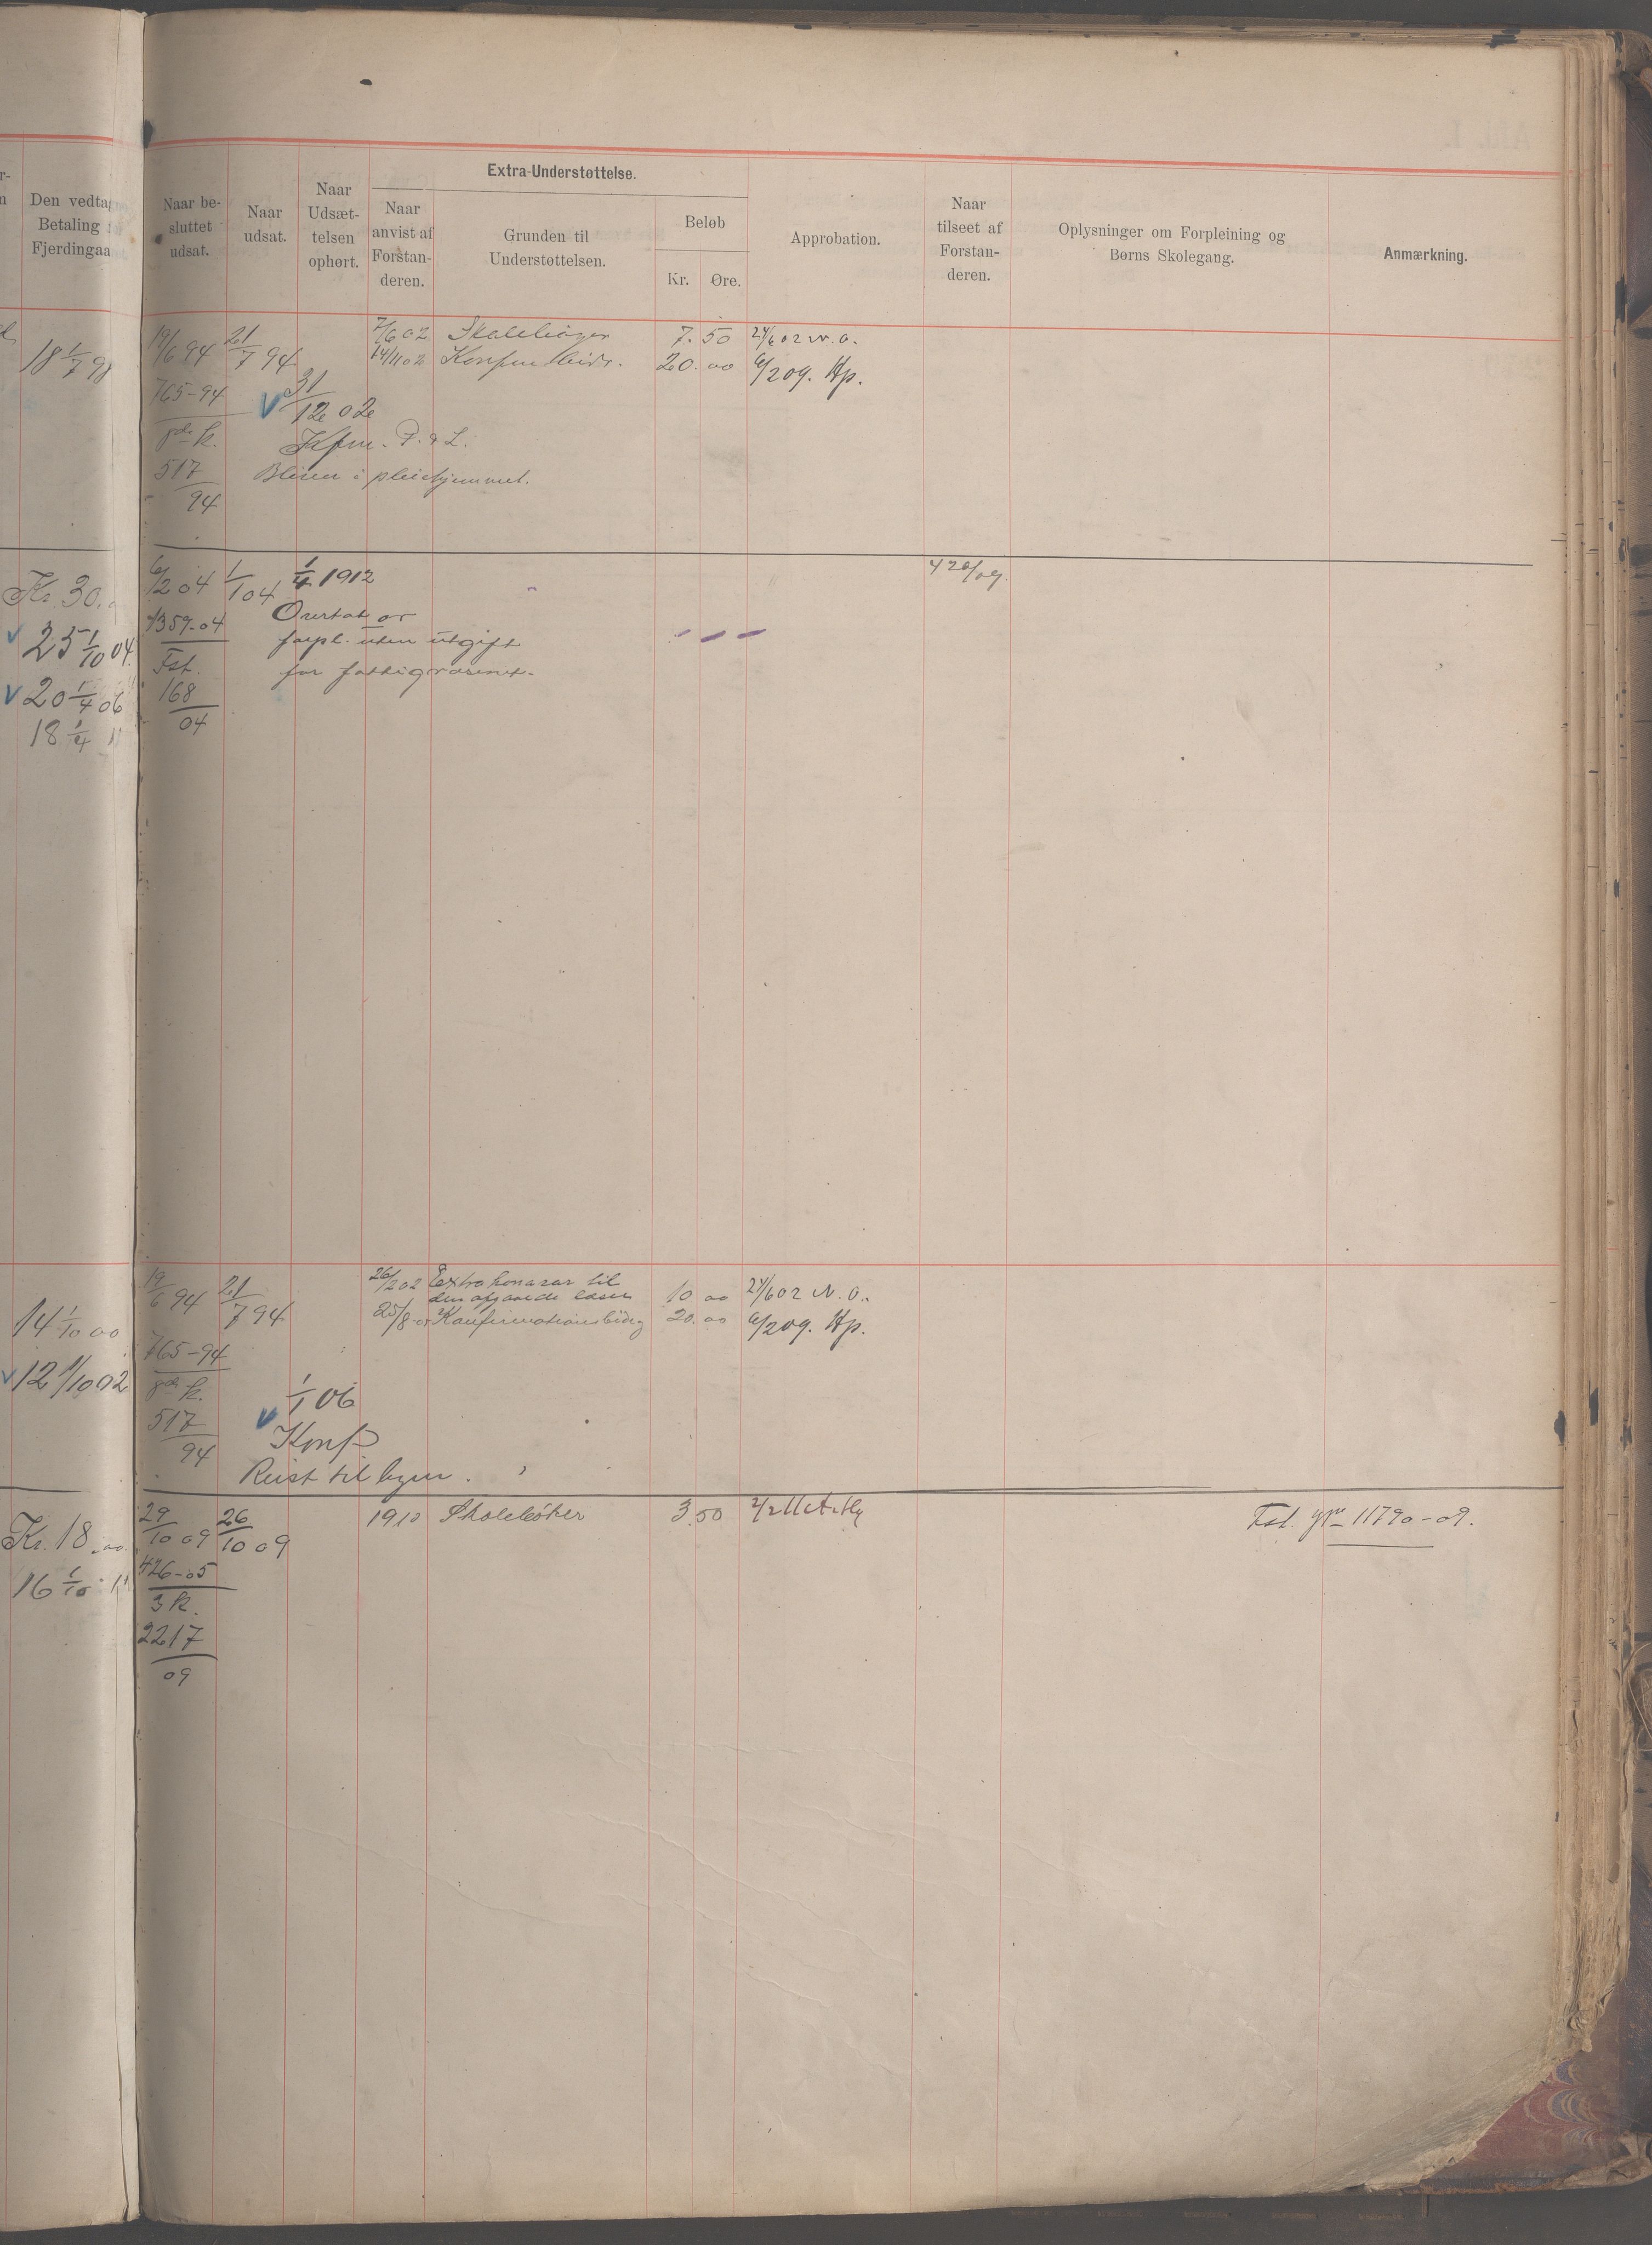 Den vedta
Betaling
Fjerdingaa
Naar be-
sluttet
udsat.
Naar
udsat.
Naar
Udsæt-
telsen
ophørt.
Extra-Understøttelse.
Naar
anvist af
Forstan-
deren.
Grunden til
Understøttelsen.
Beløb
Kr. Øre.
Approbation.
Naar
tilseet af
Forstan-
deren.
Oplysninger om Forpleining og
Børns Skolegang.
Anmærkning.
18 1/7 98
19/6 94 21/7 94 7/6 02 7.50 24/6 02 N.O.
14/11 02 20.00 6/2 09. Hp.
765-94
31/12 02
517/94
Bliver i pleiehjemmet.
Kr. 30.
6/2 04 1/1 04 1/4 1912
25 1/10 04
1359-04
Overtat av
forpl. uten utgift
for fattigvæsenet.
Fst.
168/04
20 1/4 06
18 1/4
19/6 94 21/7 94 26/2 02 Extra honorar til 10 00 24/6 02 N.O.
25/8 Konfirmationsbidrag 20.00 6/2 09. Hp.
14 1/10 00
765-94
12 1/10 02
517/94
1/1 06
Konf
Reist til byen.
Kr. 18.00
29/10 09 26/10 09 1910 Skolebøker 3.50
Fst. gr 11790-09.
16 1/10
426-05
3 k.
2217/09